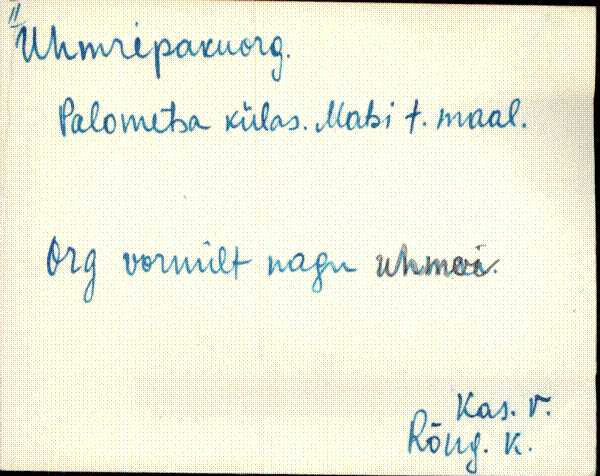 "Uhmripakuorg.
Palometsa külas. Matsi t. maal.
Org vormilt nagu uhmri.
Kas. v.
Rõug. k.